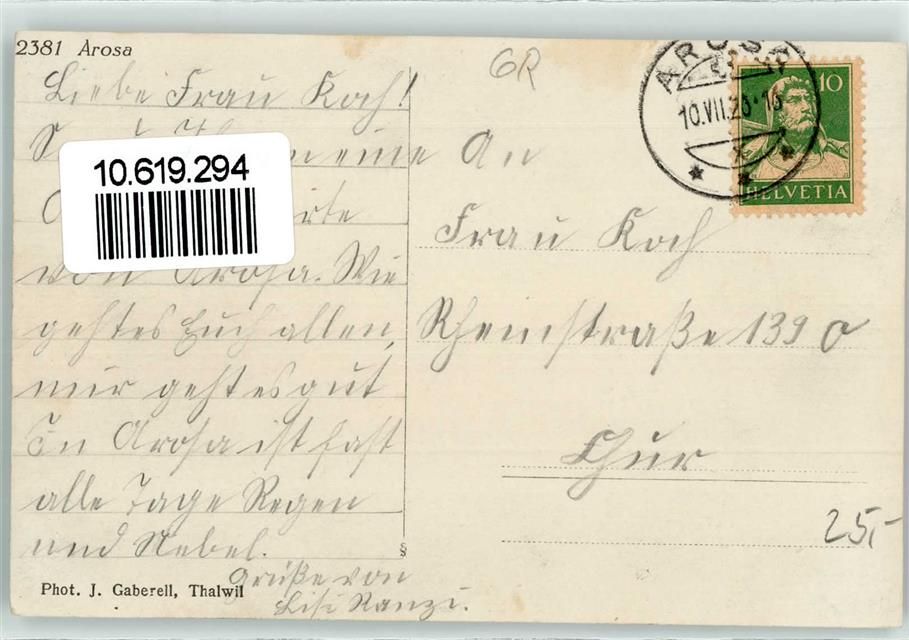 2381 Arosa
Liebe Frau Koch!
eine
von Arosa. Wie
geht es Euch allen,
mir geht es gut
In Arosa ist fast
alle Tage Regen
und Nebel.
Grüße von
Lisi Ranzi.
§
Phot. J. Gaberell, Thalwil
10.619.294
GR
AROSA
10.VII.
10
HELVETIA
An
Frau Koch
Rheinstraße 139
Chur
25,-